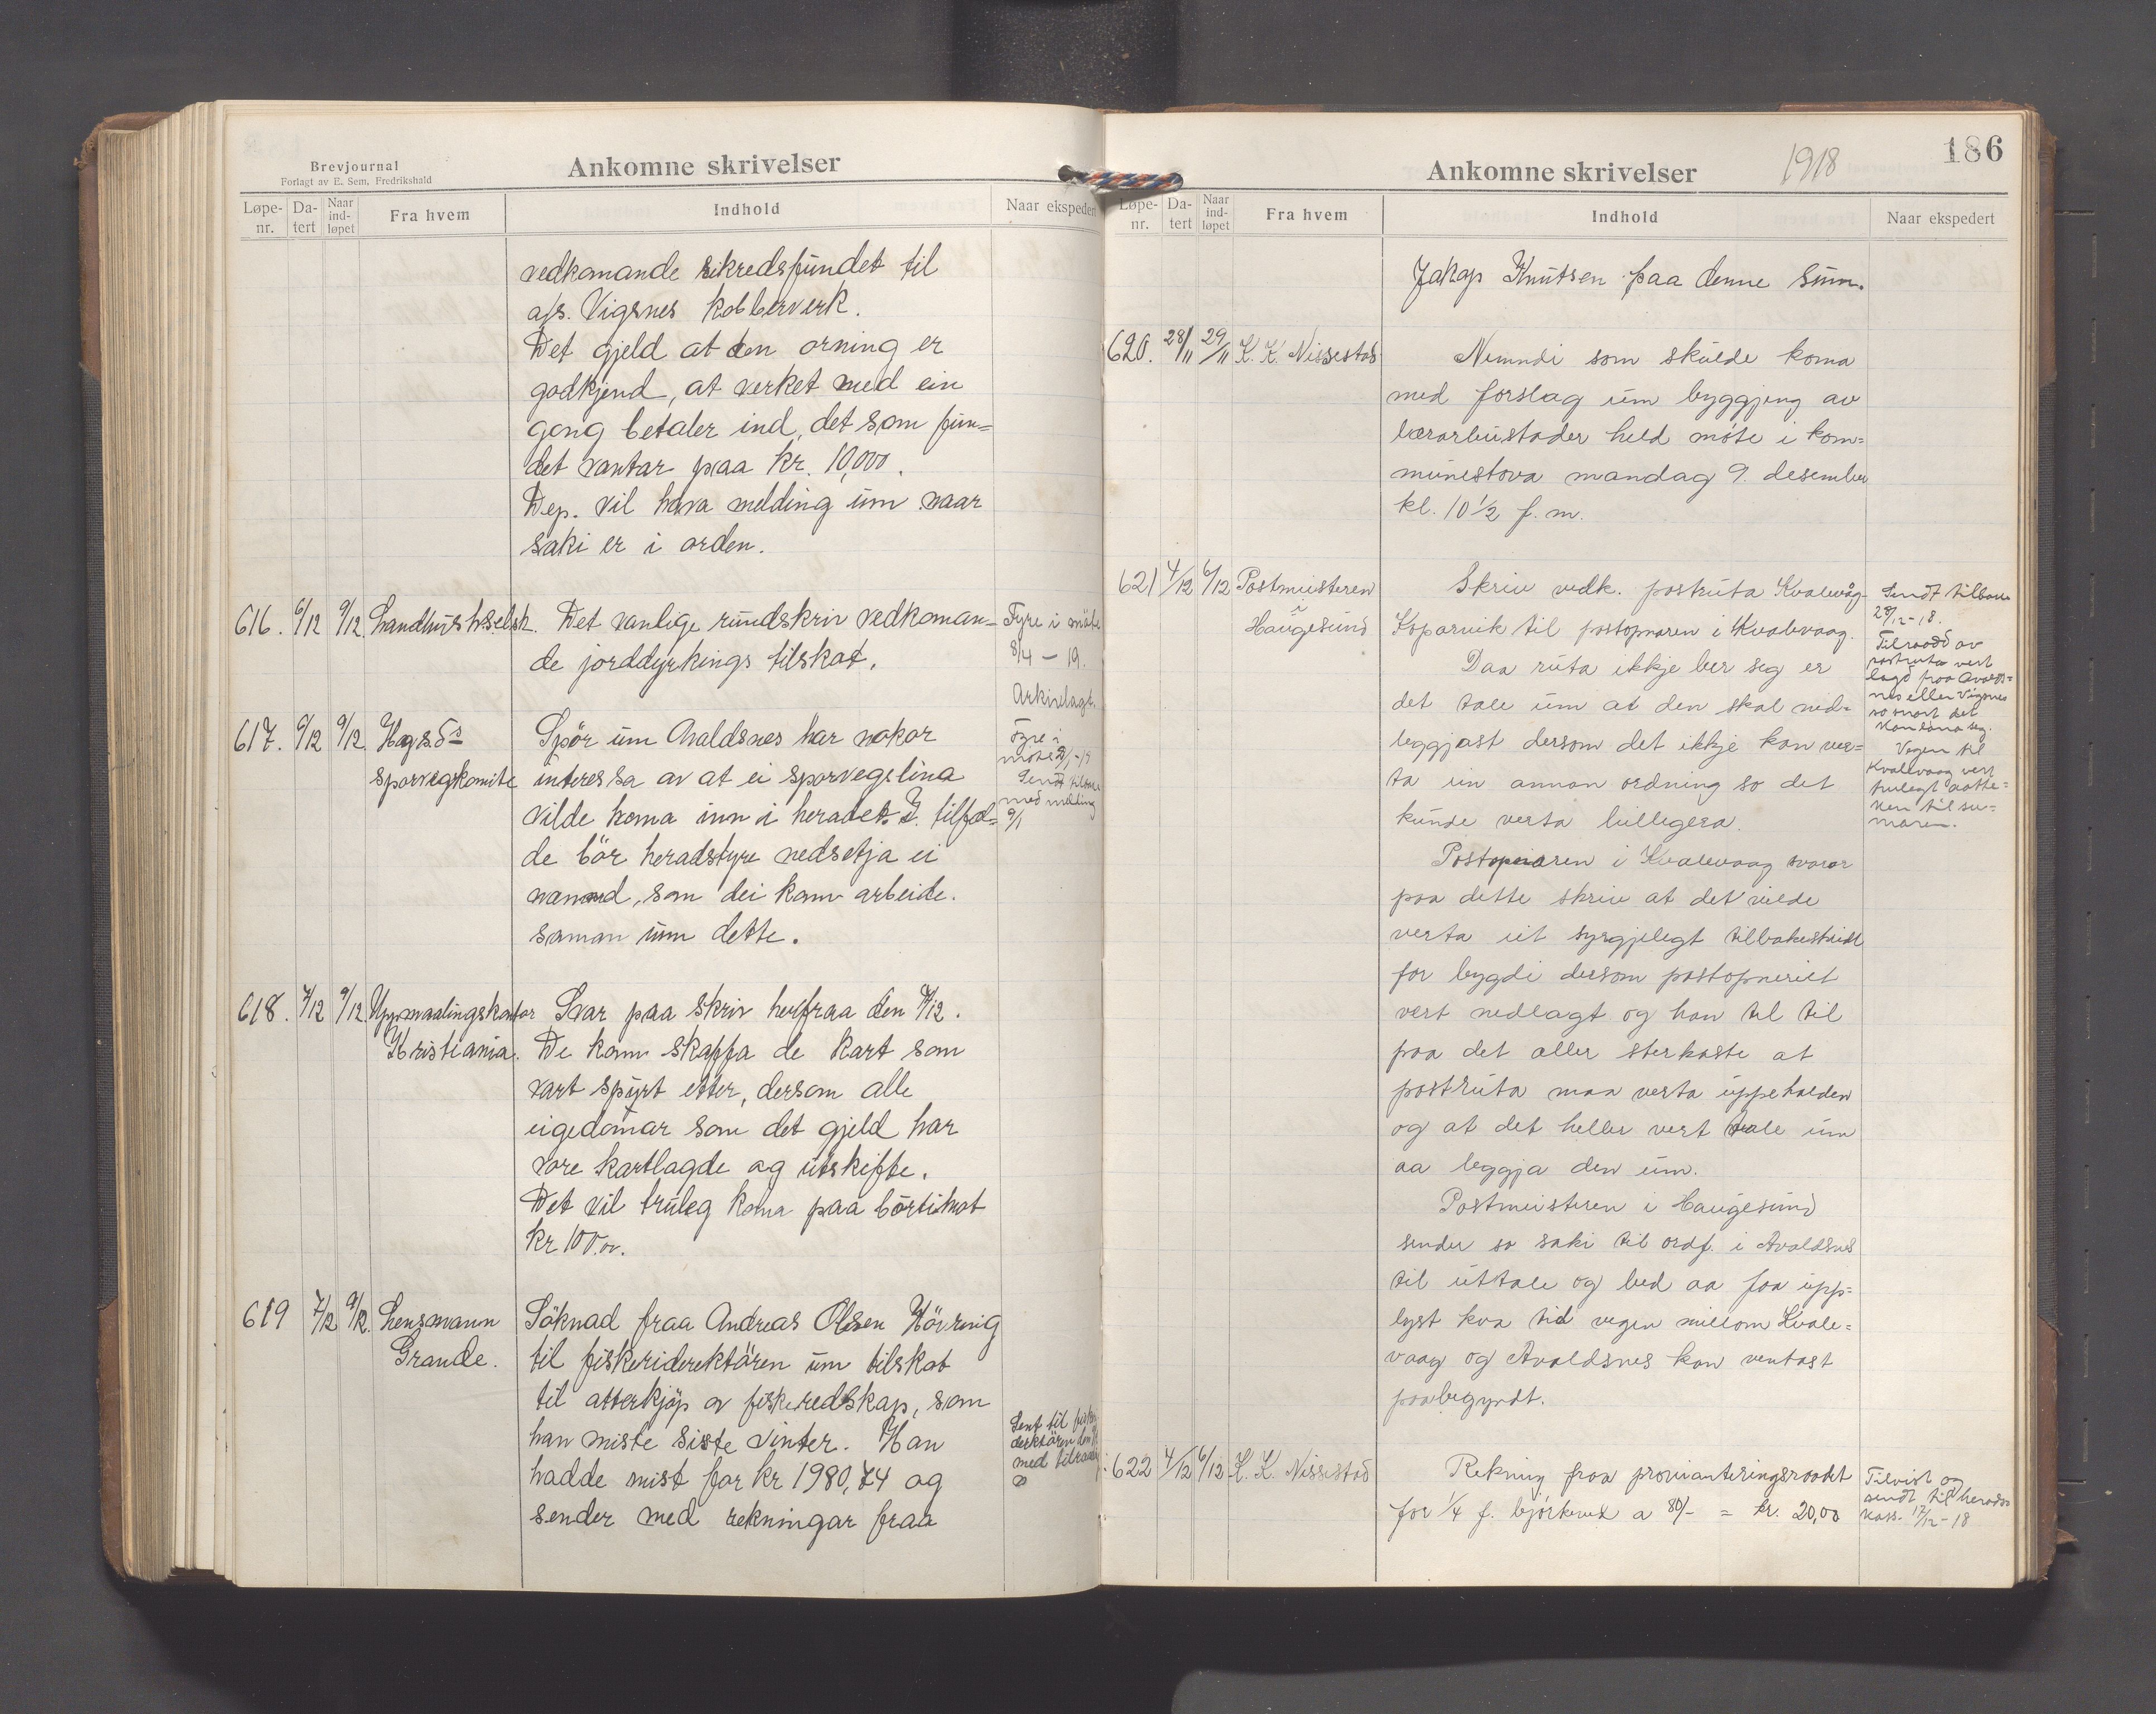 Brevjournal
Forlagt av E. Sem, Fredrikshald
Ankomne skrivelser
Løpe-nr. Da-tert Naar ind-løpet Fra hvem Indhold Naar ekspedert
vedkomande sikredsfundet til
a/s. Vigsnes Kobberverk.
Det gjeld at den orning er
godkjend, at verket med ein
gong betaler ind, det som fun=
det vantar paa kr. 10,000.
Dep. vil hava melding um naar
saki er i orden.
616. 6/12 9/12 Landhushselsk. Det vanlige rundskriv vedkoman=
de jorddyrkings tilskot.
Fyre i møte
8/4 – 19.
Arkivlagt.
617. 6/12 9/12 Hags.ds Spör um Avaldsnes har nokor
sporvegskomite interessa av at ei sporvegslina
vilde koma inn i heradet. I tilfæl=
de bör heradstyre nedsetja ei
nemnd, som dei kann arbeide
saman um dette.
fyre i
møte
Sendt tilbake
med melding
9/1
618. 7/12 9/12 Uppmaalingskontor Svar paa skriv herfraa den 4/12.
Kristiania. De kann skaffa de kart som
vart spurt etter, dersom alle
eigedomar som det gjeld har
vore kartlagde og utskifte.
Det vil truleg koma paa bortimot
kr 100.00.
619 7/12 9/12. Lensmann Söknad fraa Andreas Olsen Hövring
Grande. til fiskeridirektören um tilskot
til atterkjöp av fiskeredskap, som
han miste siste vinter. Han
hadde mist for kr 1980,74 og
sender med rekningar fraa
Sent til fisk
derktören den
med tilraad
186
1918
Ankomne skrivelser
Løpe-nr. Da-tert Naar ind-løpet Fra hvem Indhold Naar ekspedert
Jakop Knutsen paa denne sum.
620. 28/11 29/11 K. K. Nissestad Nemndi som skulde koma
med forslag um byggjing av
lærarbustader held møte i kom=
munestova mandag 9. desember
kl. 10 1/2 f. m.
621 4/12 6/12 Postmeisteren Skriv vedk. postruta Kvalevåg-
Haugesund Koparvik til postopnaren i Kvalevaag.
Daa ruta ikkje ber seg er
det tale um at den skal ned=
leggjast dersom det ikkje kan ver=
ta ein annan ordning so det
kunde verta billegera.
Postopnaren i Kvalevaag svarar
paa dette skriv at det vilde
verta eit syrgjelegt tilbakeskridt
for bygdi dersom postopneriet
vert nedlagt og han til til
paa det aller sterkaste at
postruta maa verta uppehalden
og at det heller vert tale um
aa leggja den um.
Postmeisteren i Haugesund
sender so saki til ordf. i Avaldsnes
til uttale og bed aa faa upp=
lyst kva tid vegen millom Kvale=
vaag og Avaldsnes kan ventast
paabegyndt.
Sendt tilbake
28/12-18.
Tilraadd av
postruta vert
lagd fraa Avalds=
nes eller Vigsnes
so snart det
kan læna seg.
Vegen til
Kvalevaag vert
truleg aatte=
ken til su=
maren.
622 4/12 6/12 K. K. Nissestad Rekning fraa provianteringsraadet
for 1/4 f. bjørkeved a 80/- = kr. 20,00
Tilvist og
sendt til herads=
kass. 17/12-18